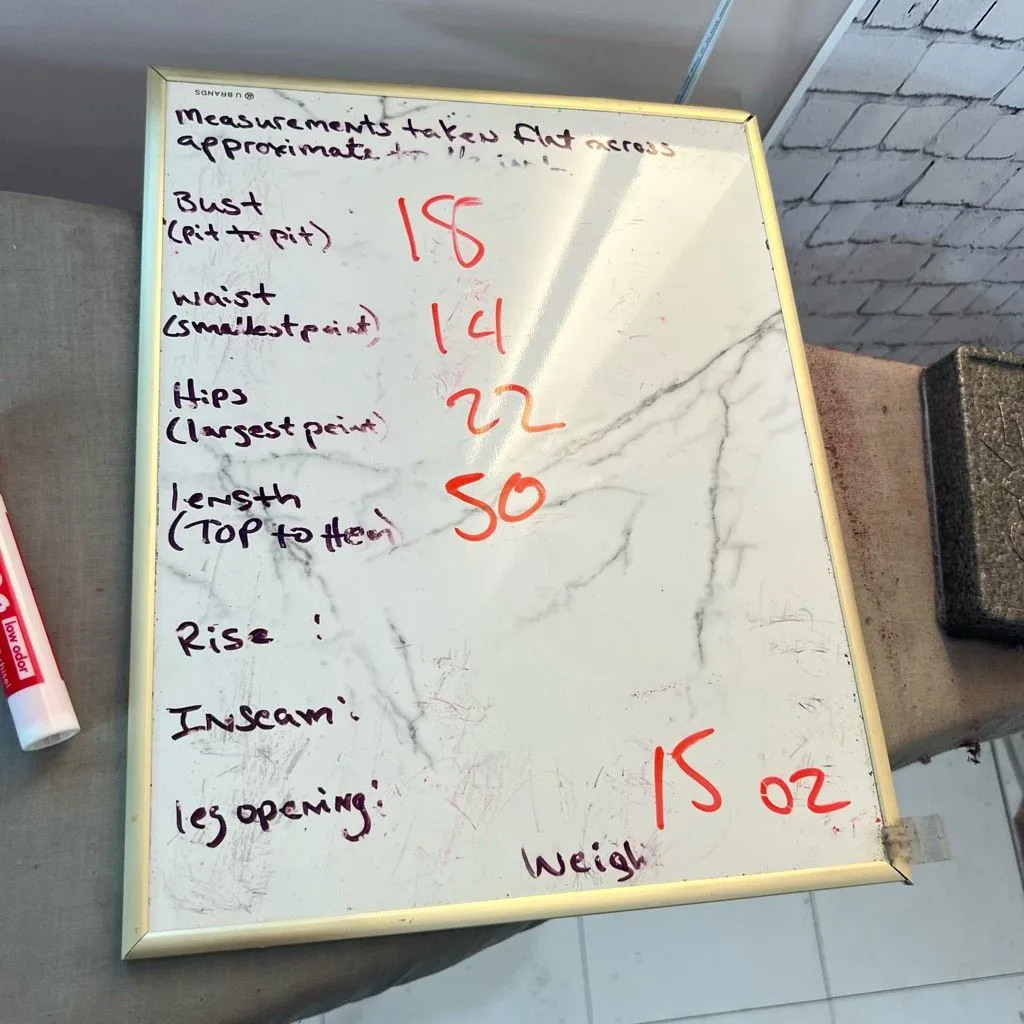 U BRANDS
Measurements taken flat across
approximate
Bust 18
(pit to pit)
waist 14
(smallest point)
Hips 22
(largest point)
length 50
(TOP to Hem)
Rise :
Inseam:
leg opening: 15 oz
Weigh
low odor
chisel